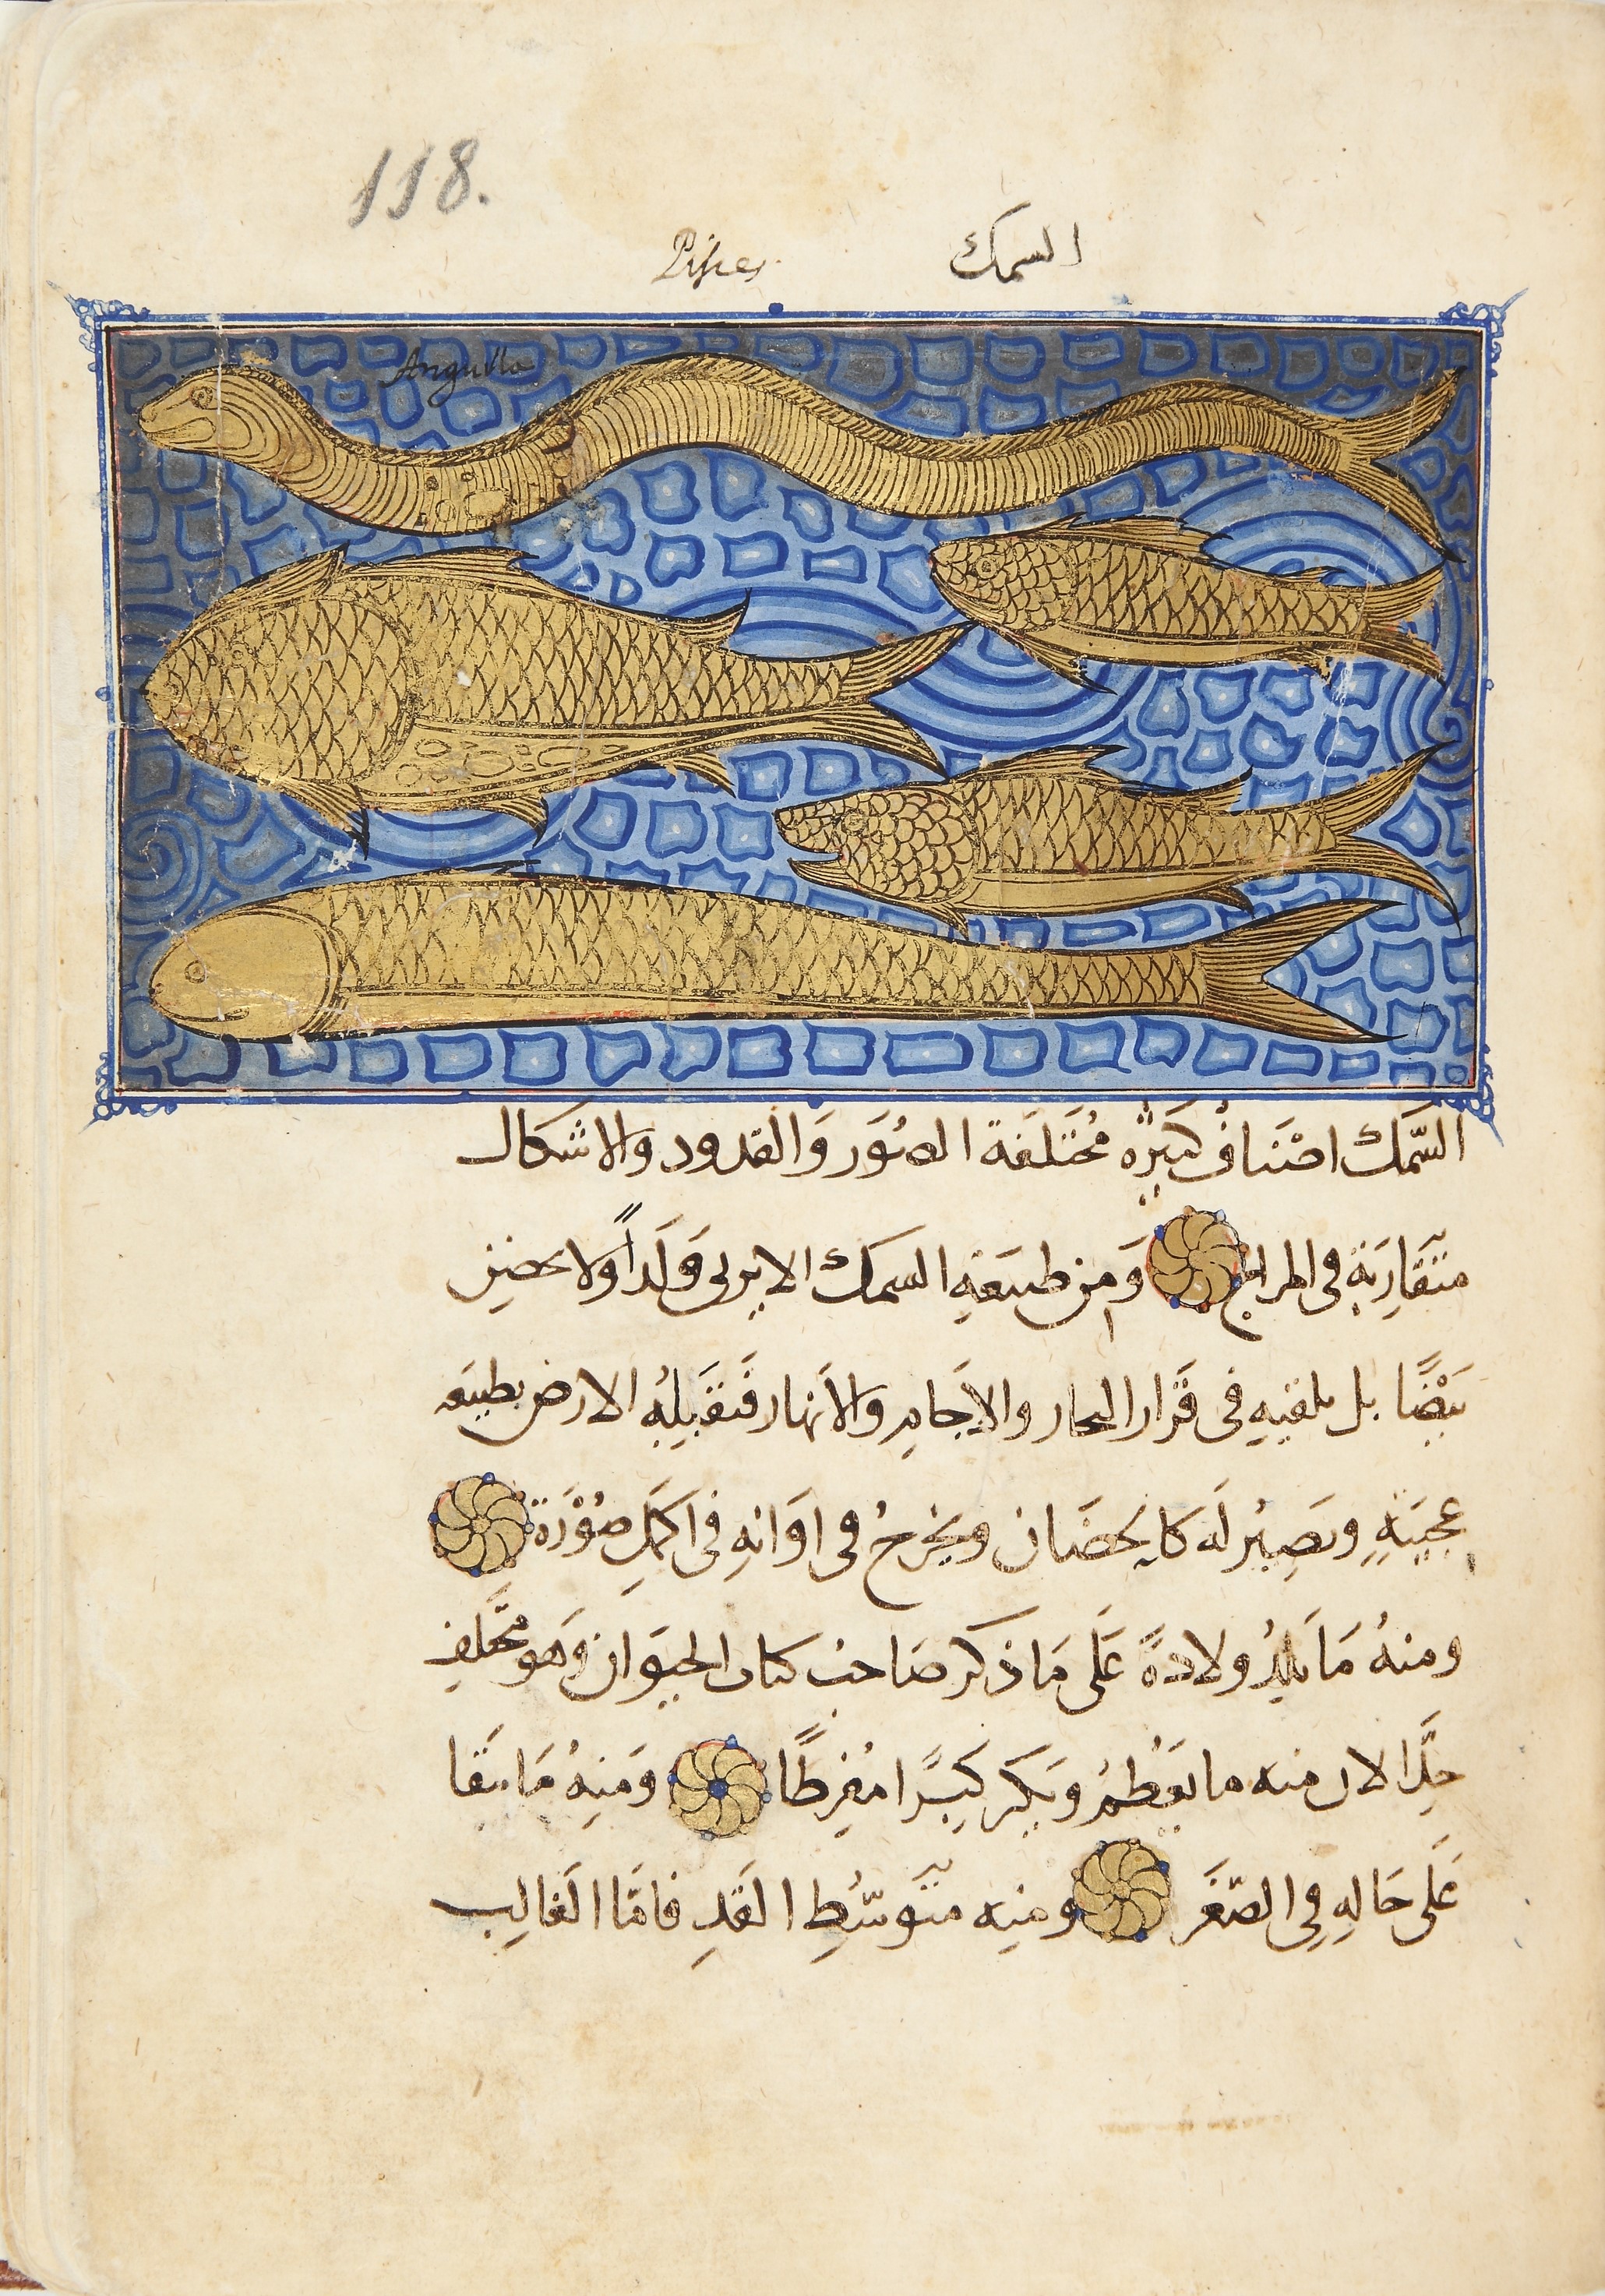 118.
السمك Pisces.
Anguilla
السَّمَك اصْنَافٌ كَثيرَةٌ مُختَلفَة الصُوَر وَالقدود والاشكال
متَقَارِبَة فى المزاج وَمِن طبيعَةِ السمك الا يربى وَلَداً ولا يحضن
بَيْضًا بل يلقيهِ فى قَرَار البحار والاجَامِ والأنهار فَتقبَلهُ الارض بطبيعَه
عجيبَةٍ وتَصِيْر لَه كالحضَان ويَخرجُ فى اوَانهِ فى اكمَلِ صُوْرَة
ومنهُ مَا يَلِدُ ولادةً عَلَى مَا ذكر صَاحبُ كتاب الحيوَان وَهو مُختلف
جِدًّا لان منه ما يَعْظمُ وَيكبر كبَرًا مُفرِطًا وَمنهُ مَا يبقَا
عَلَى حَالهِ فِى الصّغَر ومنِه متَوسّطِ القَدِ فامَّا الغَالِب